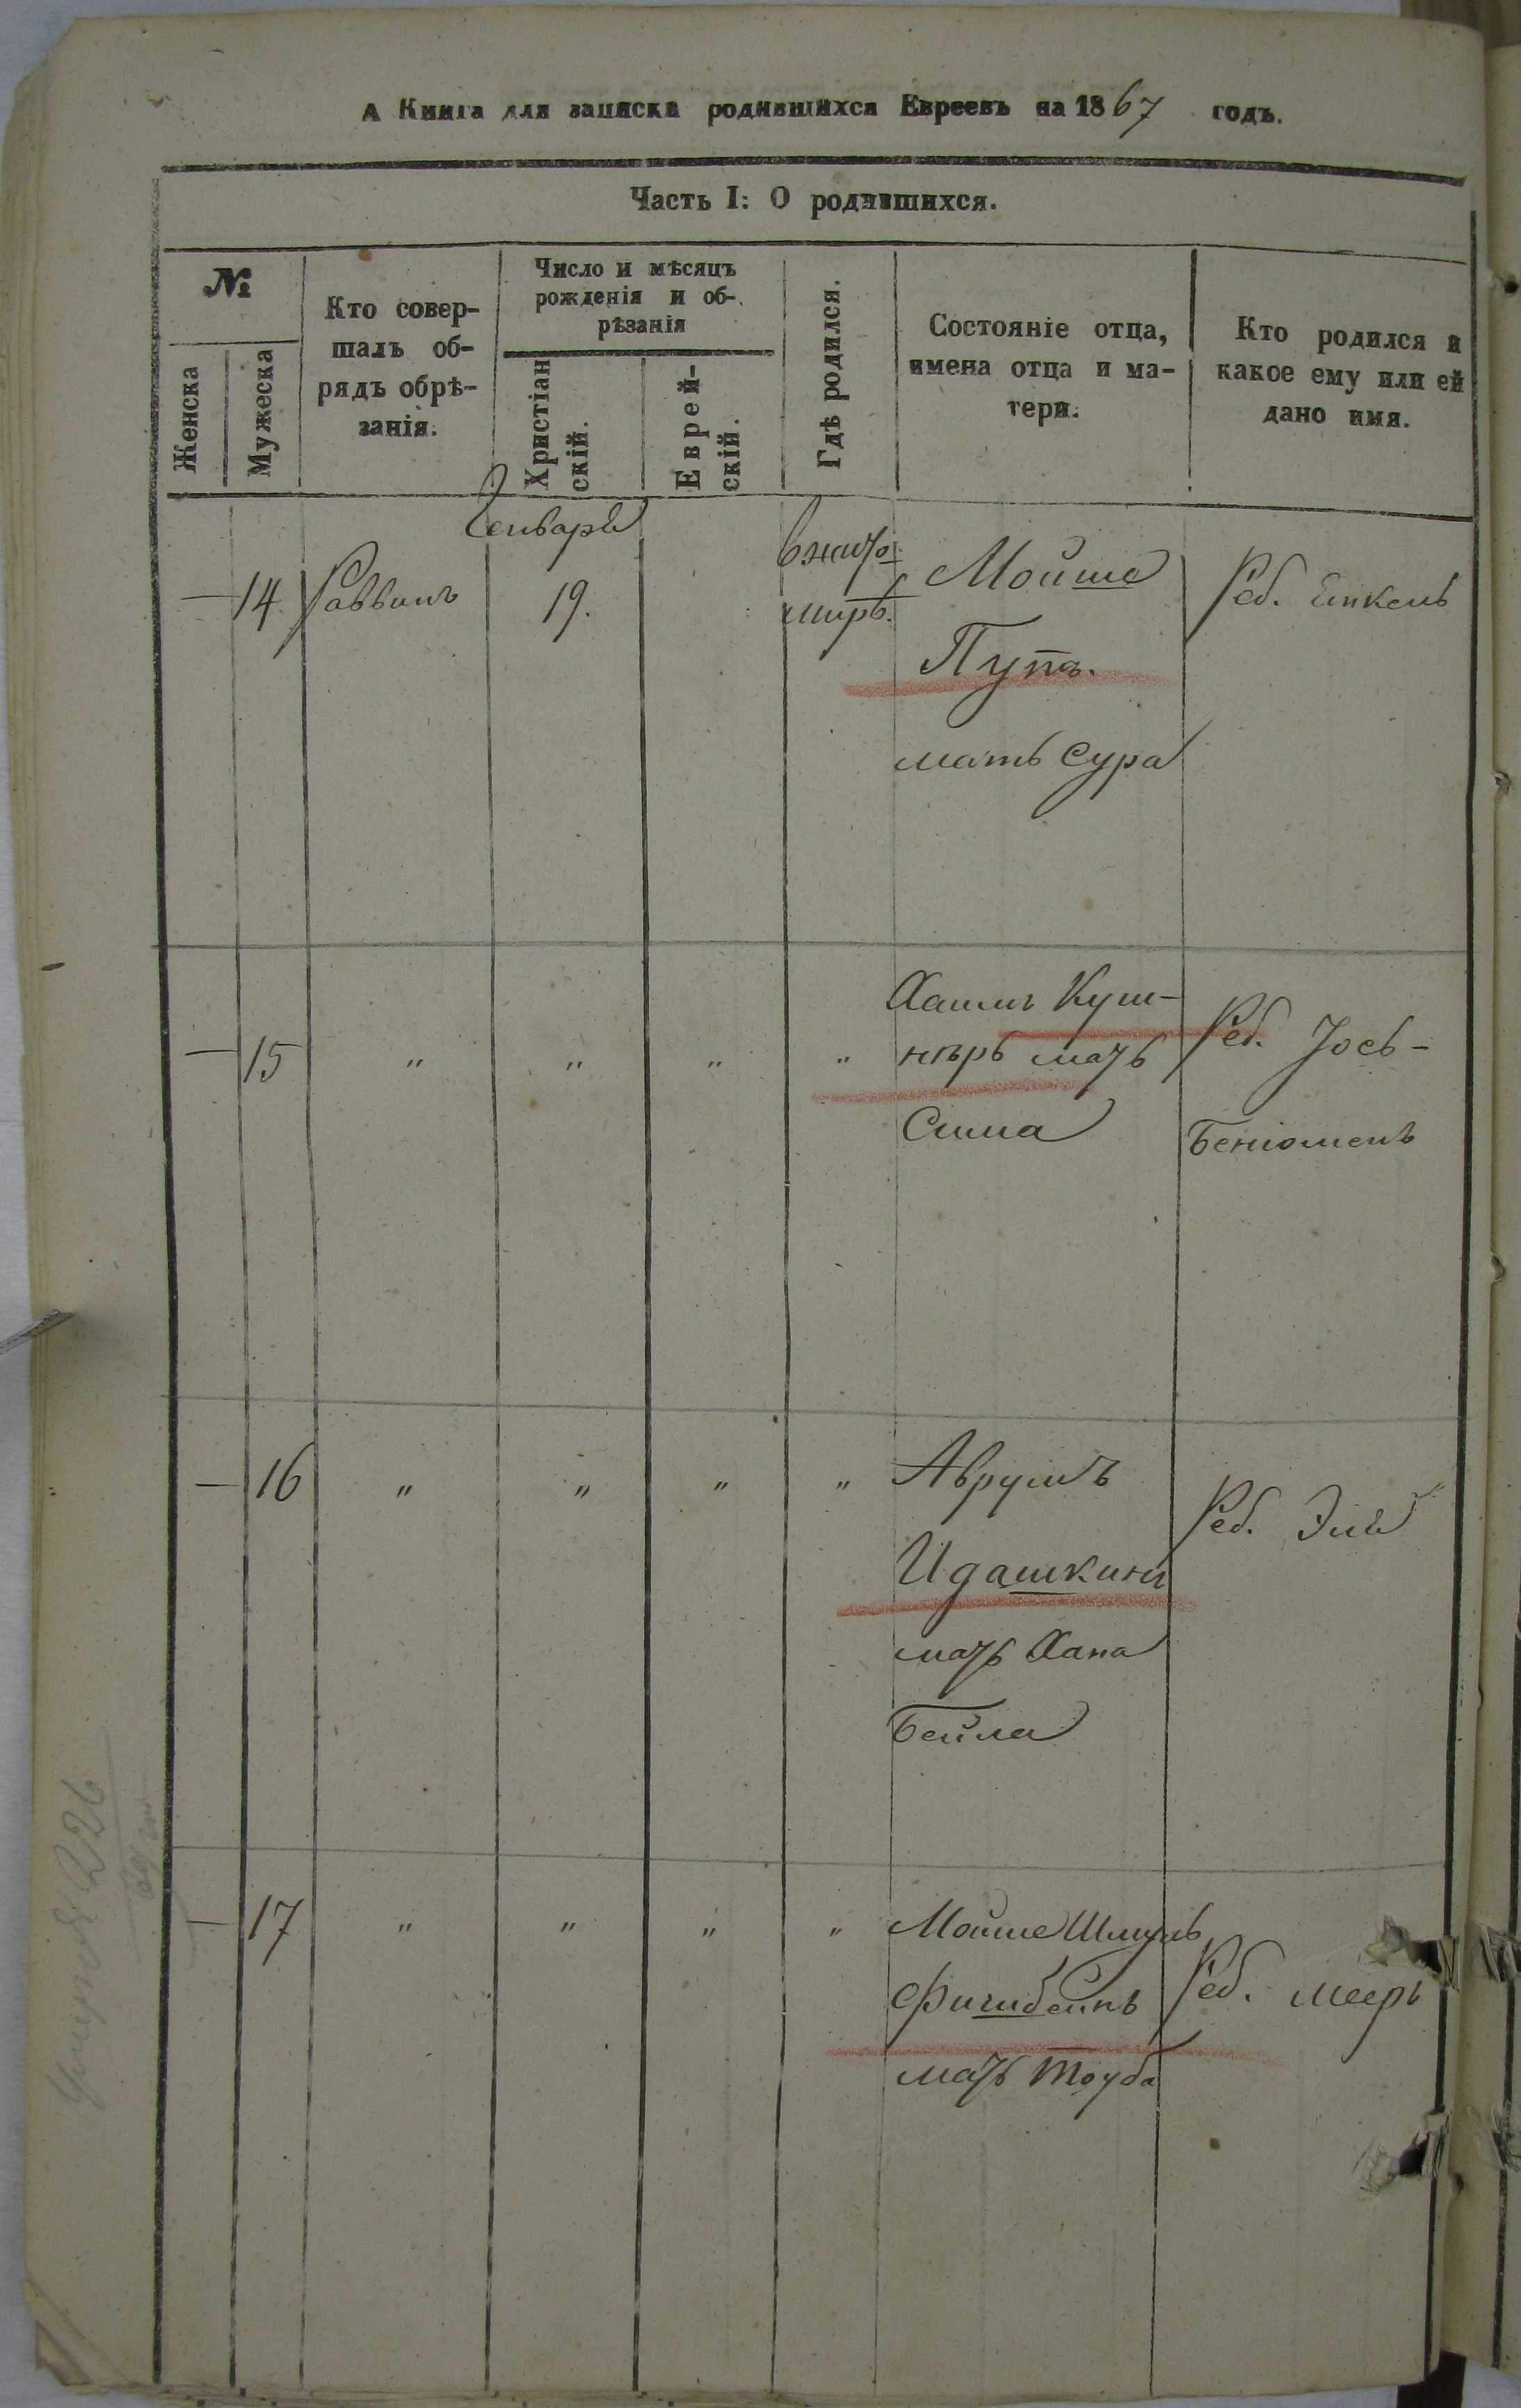 А Книга для записки родившихся Евреевъ на 1867 годъ.
Часть I: О родившихся.
№
Женска
Мужеска
Кто совер-
шалъ об-
рядъ обрѣ-
занія.
Число и мѣсяцъ
рожденія и об-
рѣзанія
Христіан
скій.
Еврей-
скій.
Гдѣ родился.
Состояніе отца,
имена отца и ма-
тери.
Кто родился и
какое ему или ей
дано имя.
Генваря
— 14 Раввинъ 19.
вжито
мирѣ.
Мойше
Путъ.
мать Сура
Реб. Енкель
— 15 " " " "
Хаимъ Куш-
нѣръ мать
Сима
Реб. Іось-
Беніоменъ
— 16 " " " "
Аврумъ
Идашкинъ
мать Хана
Бейла
Реб. Эля
— 17 " " " "
Мойше Шмуль
мать Тоуба
Реб. Мееръ
226